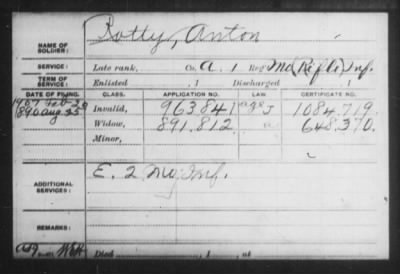 NAME OF SOLDIER: Botty, Anton
SERVICE: Late rank, Co. A, 1 Reg't Mo (Rifle) Inf.
TERM OF SERVICE: Enlisted , 1 Discharged , 1
DATE OF FILING. CLASS. APPLICATION NO. LAW. CERTIFICATE NO.
1907 Feb 20 Invalid, 963.841 1084.719.
1890 Aug 25 Widow, 891.812 648.370.
Minor,
ADDITIONAL SERVICES: E. 2 Mo Inf.
REMARKS:
Died , 1 , at